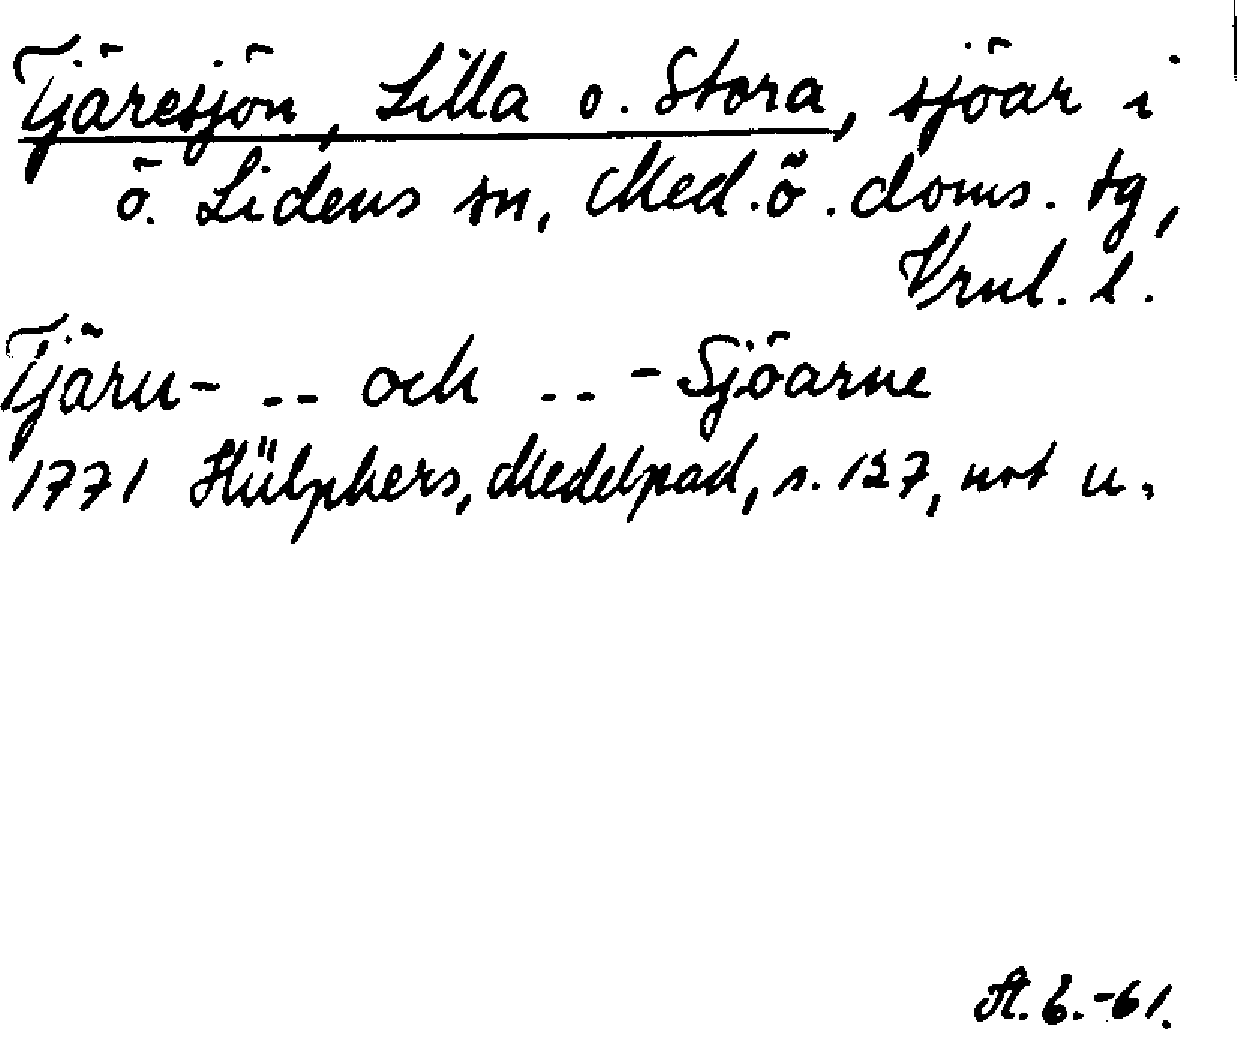 Tjäresjön, Lilla o. Stora, sjöar i
ö. Lidens sn, Med. ö. doms. tg,
Vrnl. l.
Tjäru- -- och -- -Sjöarne
1771 Hülphers, Medelpad, s. 127, not u.
St. 6.-61.